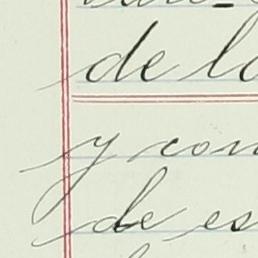 de la
y con
de es